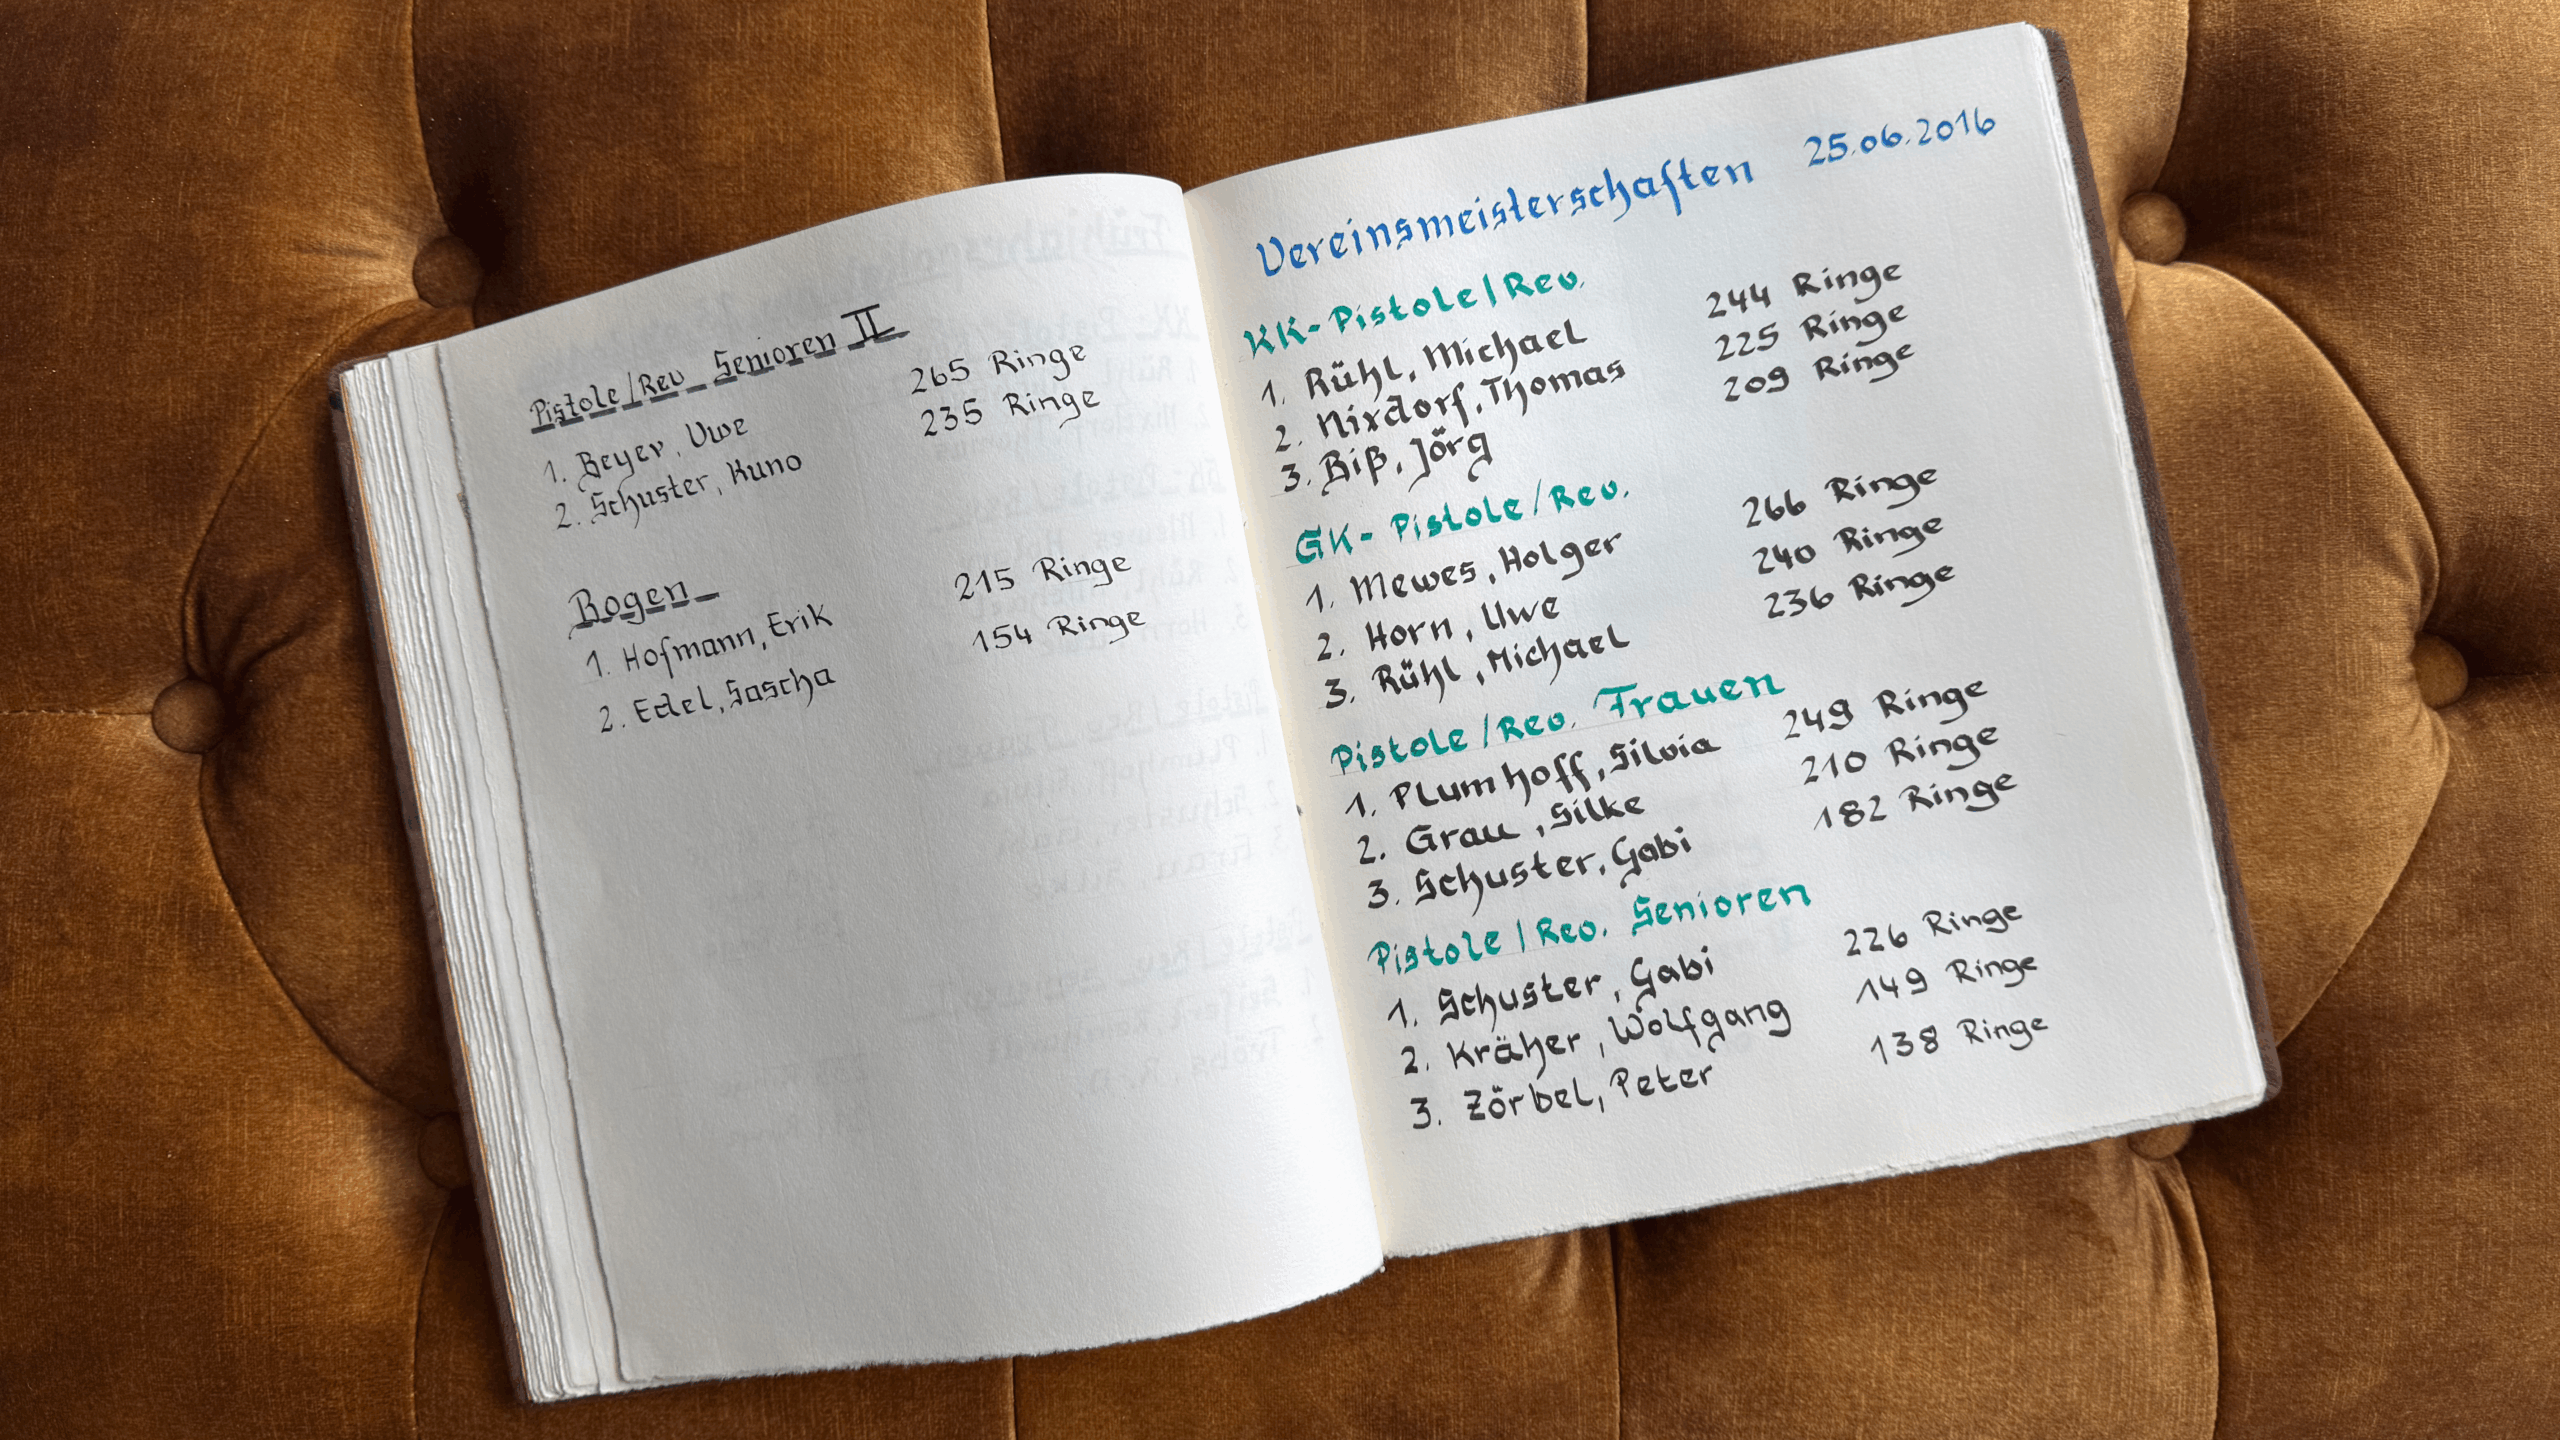 Pistole/Rev Senioren II
1. Beyer, Uwe 265 Ringe
2. Schuster, Kuno 235 Ringe
Bogen
1. Hofmann, Erik 215 Ringe
2. Edel, Sascha 154 Ringe
Vereinsmeisterschaften 25.06.2016
KK-Pistole/Rev.
1. Rühl, Michael 244 Ringe
2. Nixdorf, Thomas 225 Ringe
3. Biß, Jörg 209 Ringe
GK-Pistole/Rev.
1. Mewes, Holger 266 Ringe
2. Horn, Uwe 240 Ringe
3. Rühl, Michael 236 Ringe
Pistole/Rev. Frauen
1. Plumhoff, Silvia 249 Ringe
2. Grau, Silke 210 Ringe
3. Schuster, Gabi 182 Ringe
Pistole/Rev. Senioren
1. Schuster, Gabi 226 Ringe
2. Kräher, Wolfgang 149 Ringe
3. Zörbel, Peter 138 Ringe